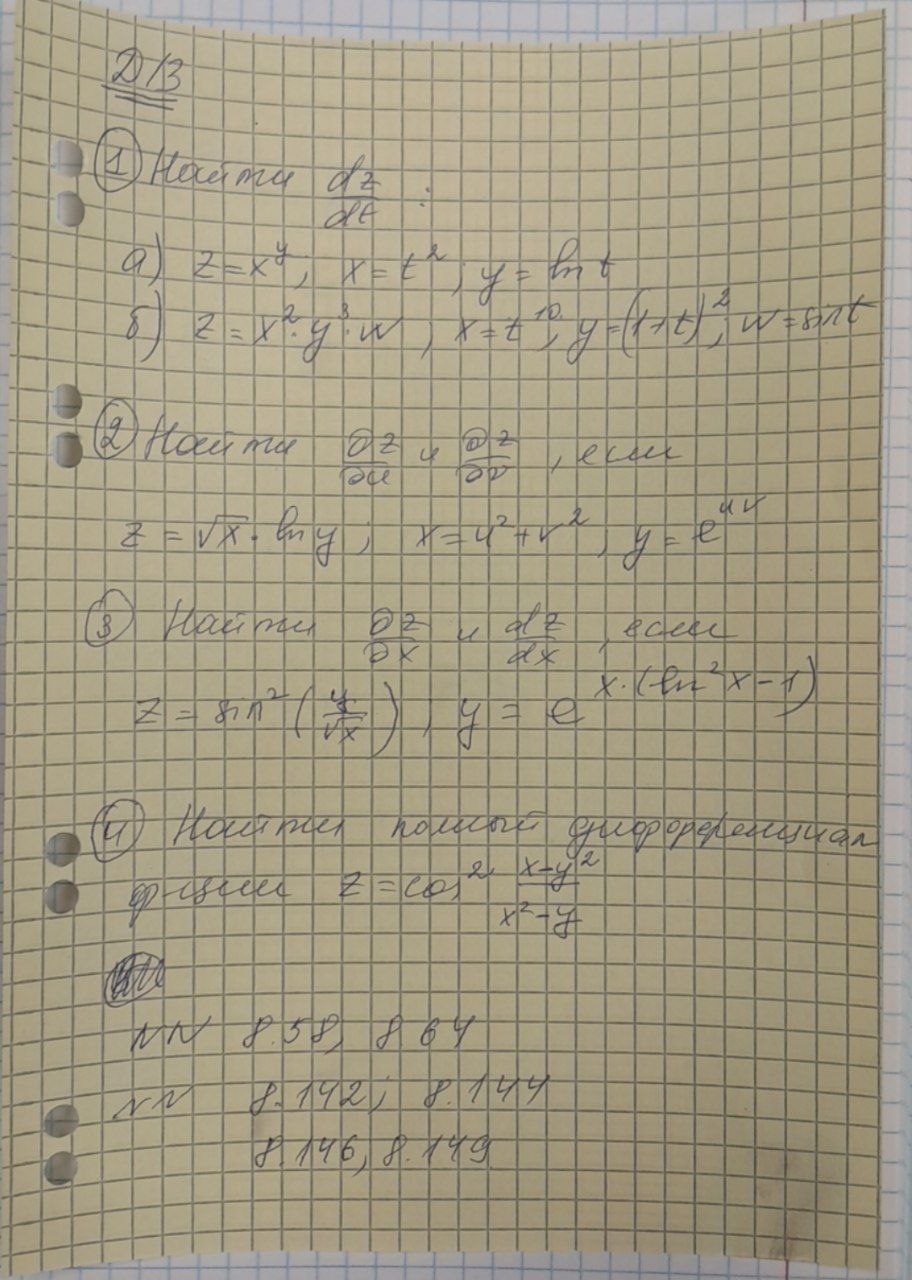 Д/З
① Найти dz/dt :
а) z = x^y; x = t^2; y = ln t
б) z = x^2·y^3·w, x = t^10, y = (1+t)^2, w = sin t
② Найти ∂z/∂u и ∂z/∂v, если
z = √x · ln y; x = u^2+v^2, y = e^uv
③ Найти ∂z/∂x и dz/dx, если
z = sin^2 (y/√x), y = e^x·(ln^2 x - 1)
④ Найти полный дифференциал
ф-ции z = cos^2 x-y^2/x^2-y
NN 8.58, 8 64
NN 8.142; 8.144
8.146, 8.149